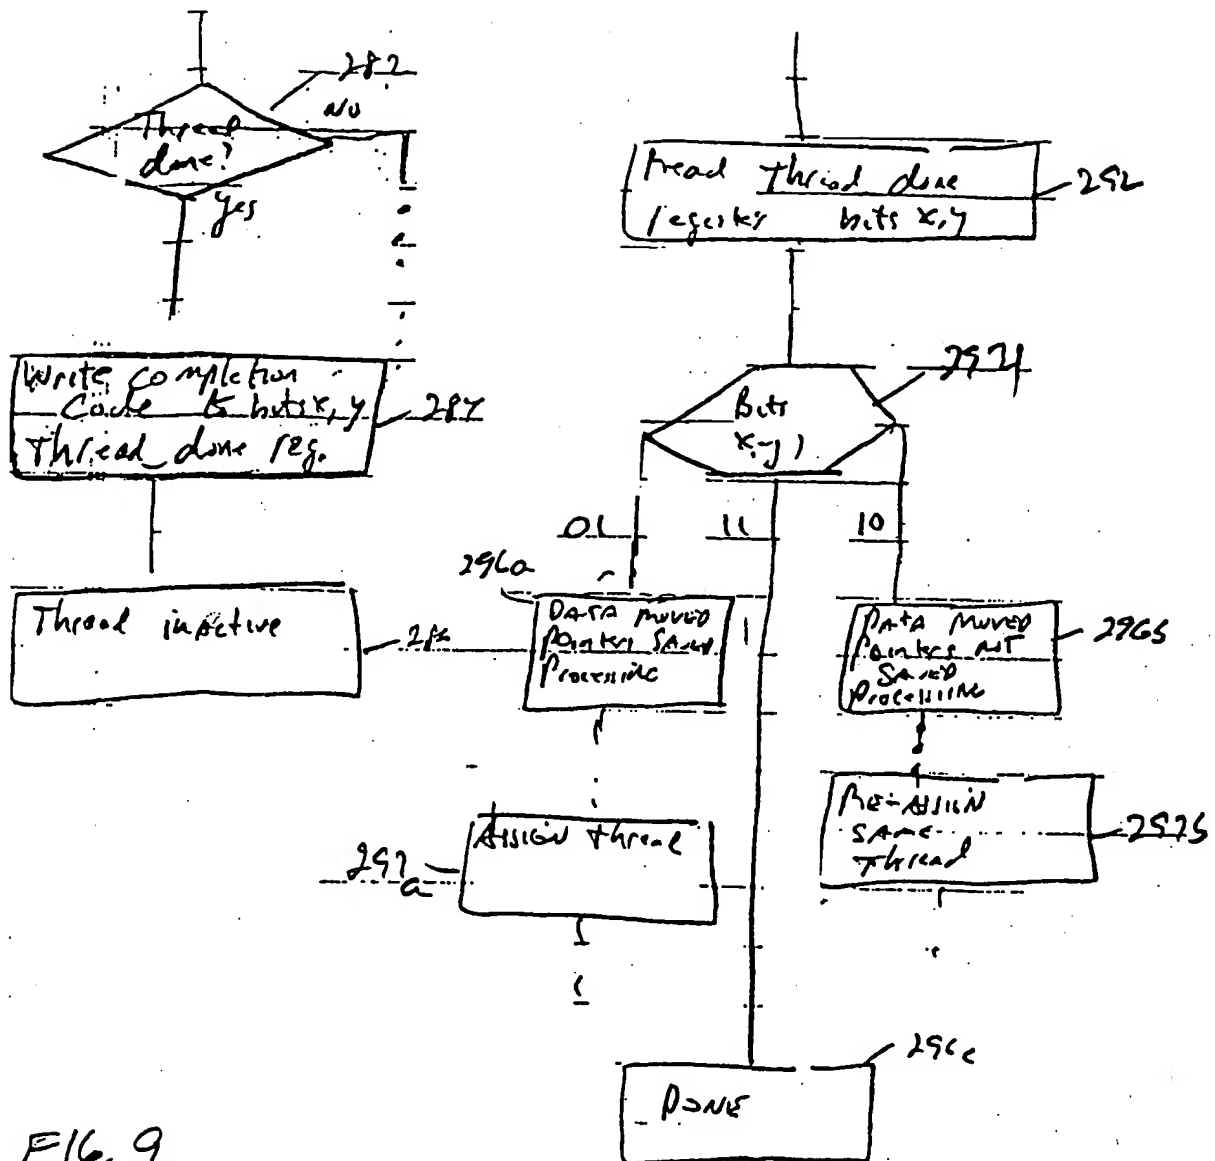 282
No
Thread
done?
yes
Write completion
Code to bits x, y
Thread_done reg.
284
Thread inactive
286
Read Thread done
registers bits x, y
292
294
Bits
x, y
01
11
10
296a
DATA MOVED
pointers SAVED
Processing
DATA MOVED
pointers NOT
SAVED
processing
296b
Assign thread
297
a
RE-ASSIGN
SAME
Thread
297b
296c
DONE
FIG. 9